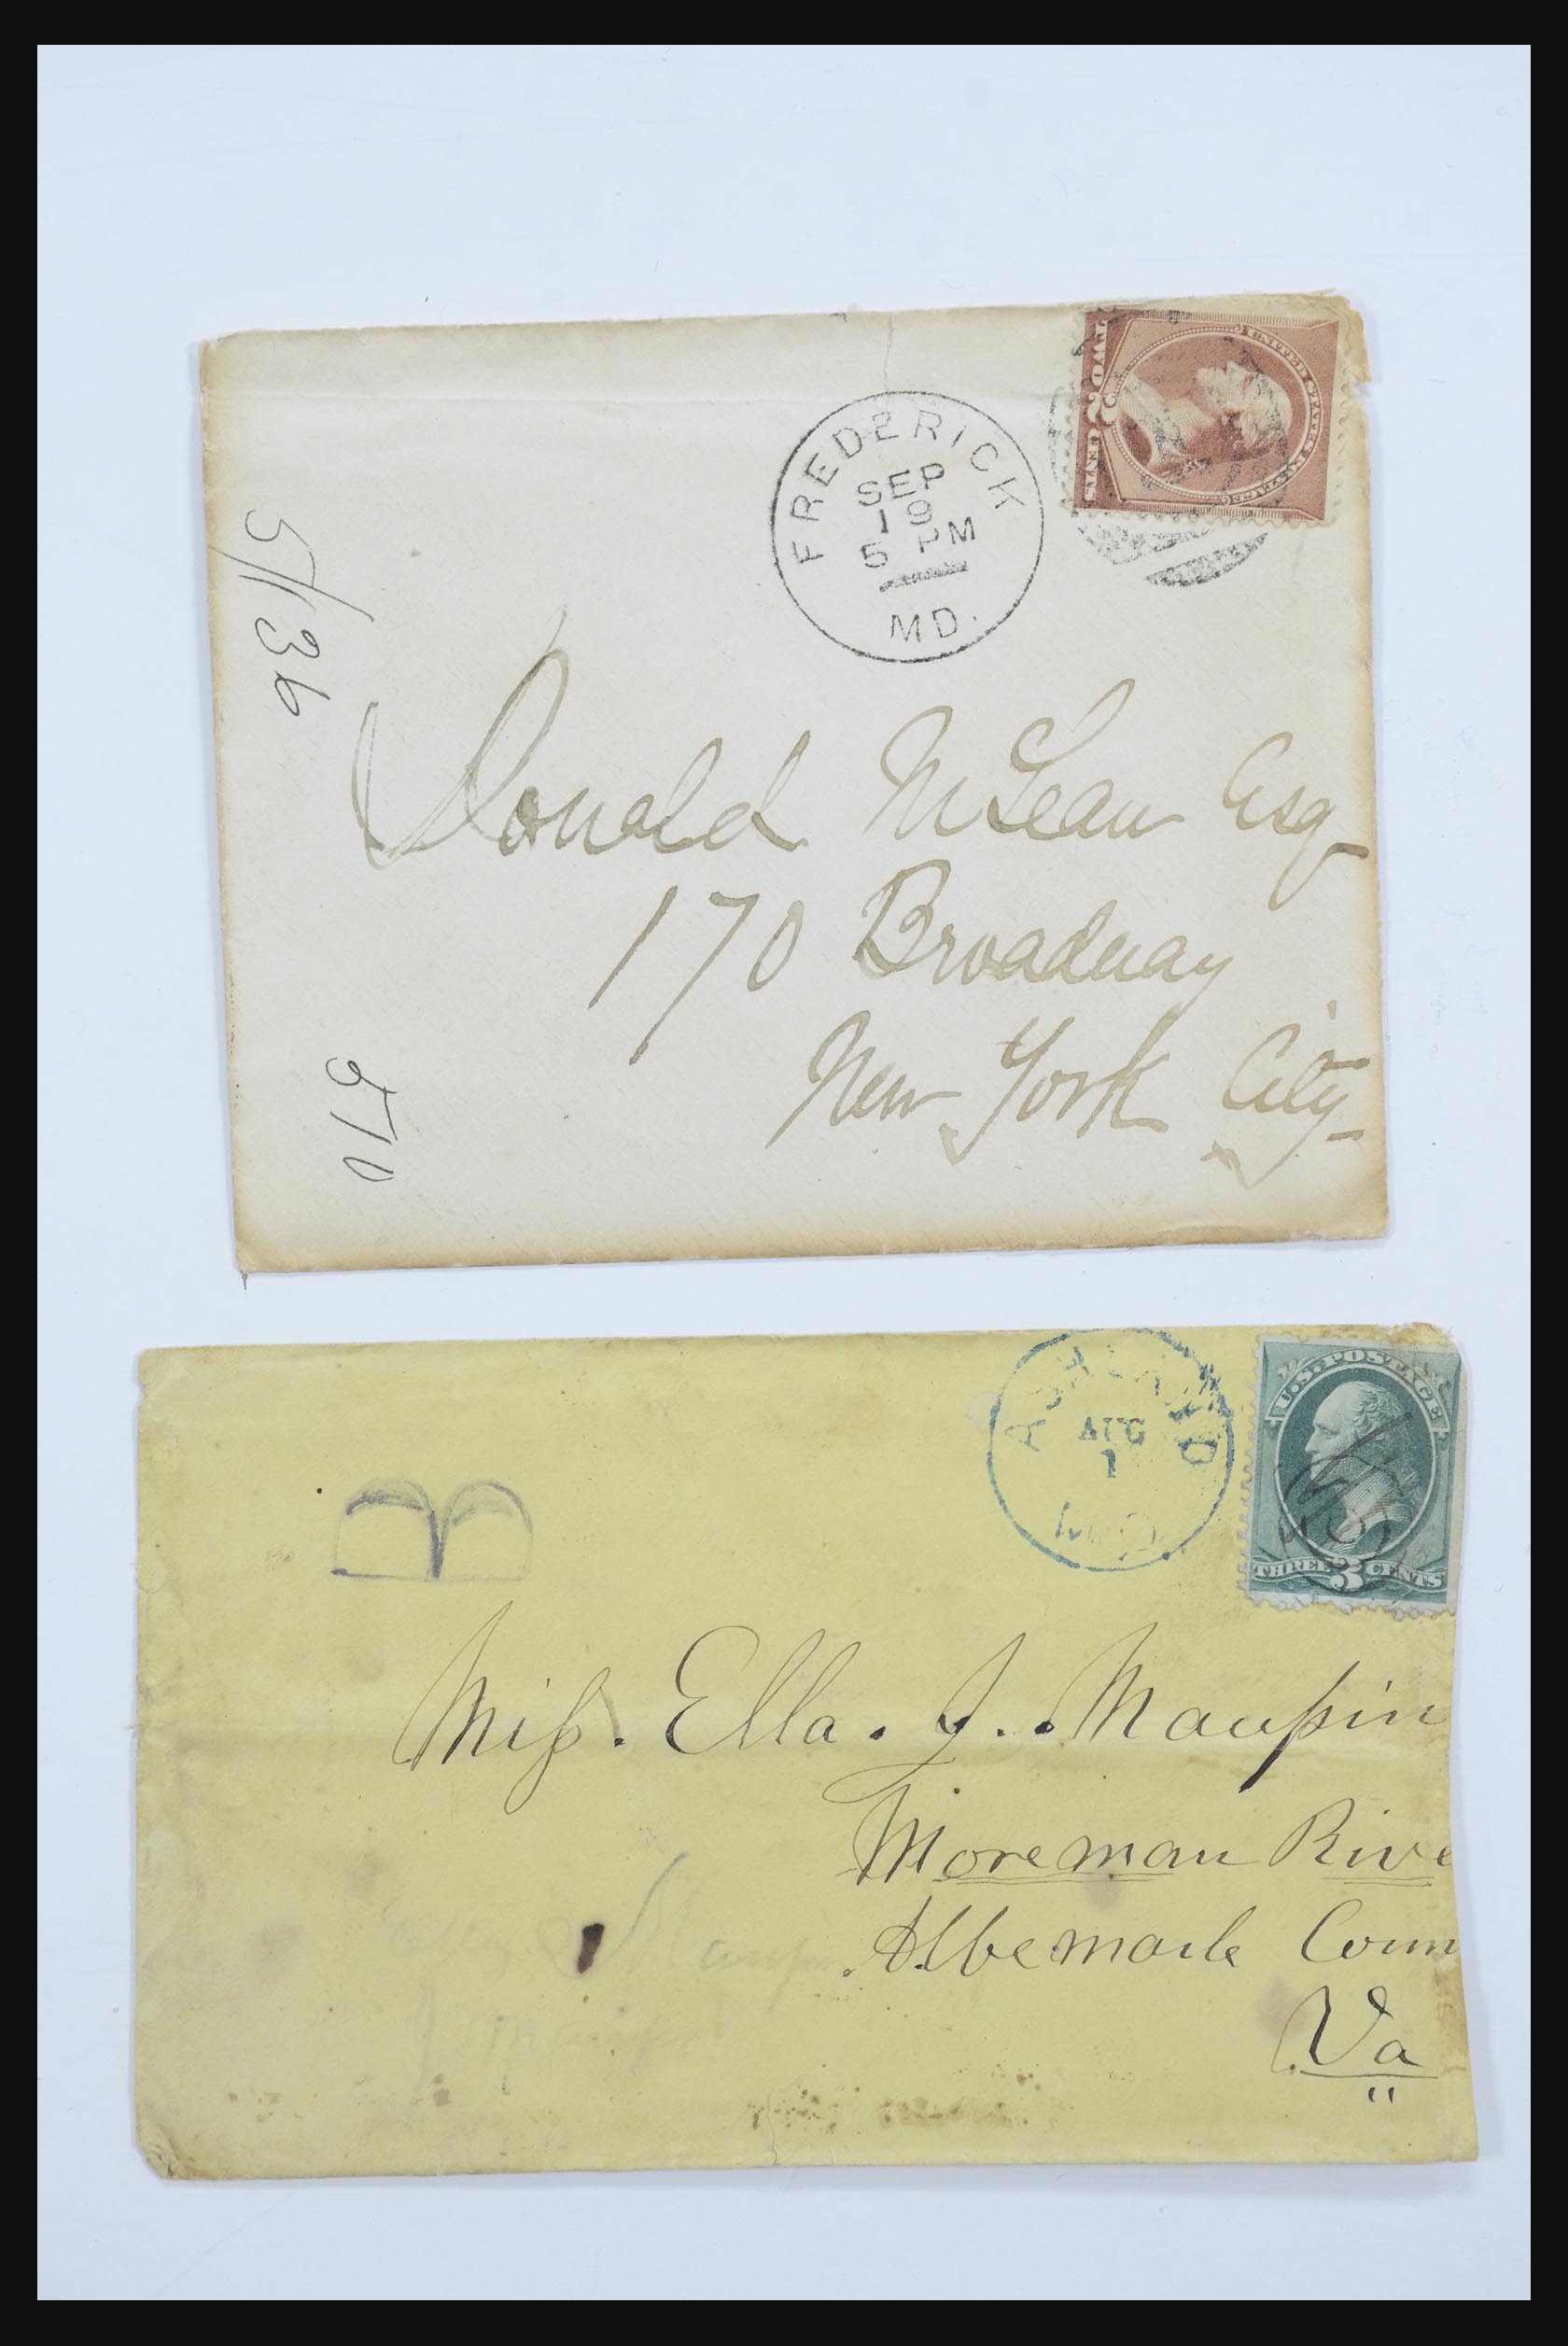 UNITED STATES POSTAGE
TWO 2 CENTS
FREDERICK
SEP
19
5 PM
MD.
5/136
Donald McLean Esq
170 Broadway
New York City
570
U.S. POSTAGE
THREE 3 CENTS
ASHLAND
AUG
1
MD.
B
Miss. Ella. J. Maupin
Moreman Rive
Albemarle Coun
Va